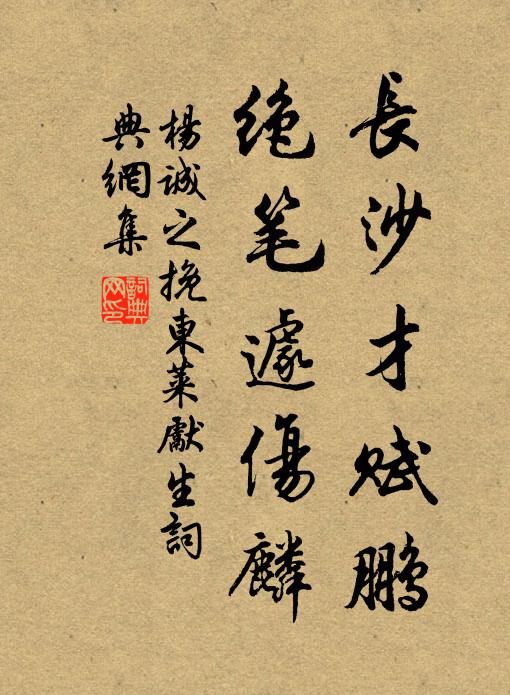 長沙才赋鹏
绝笔遽傷麟
楊诚之挽東莱獻生詞
典網集
詞典网印